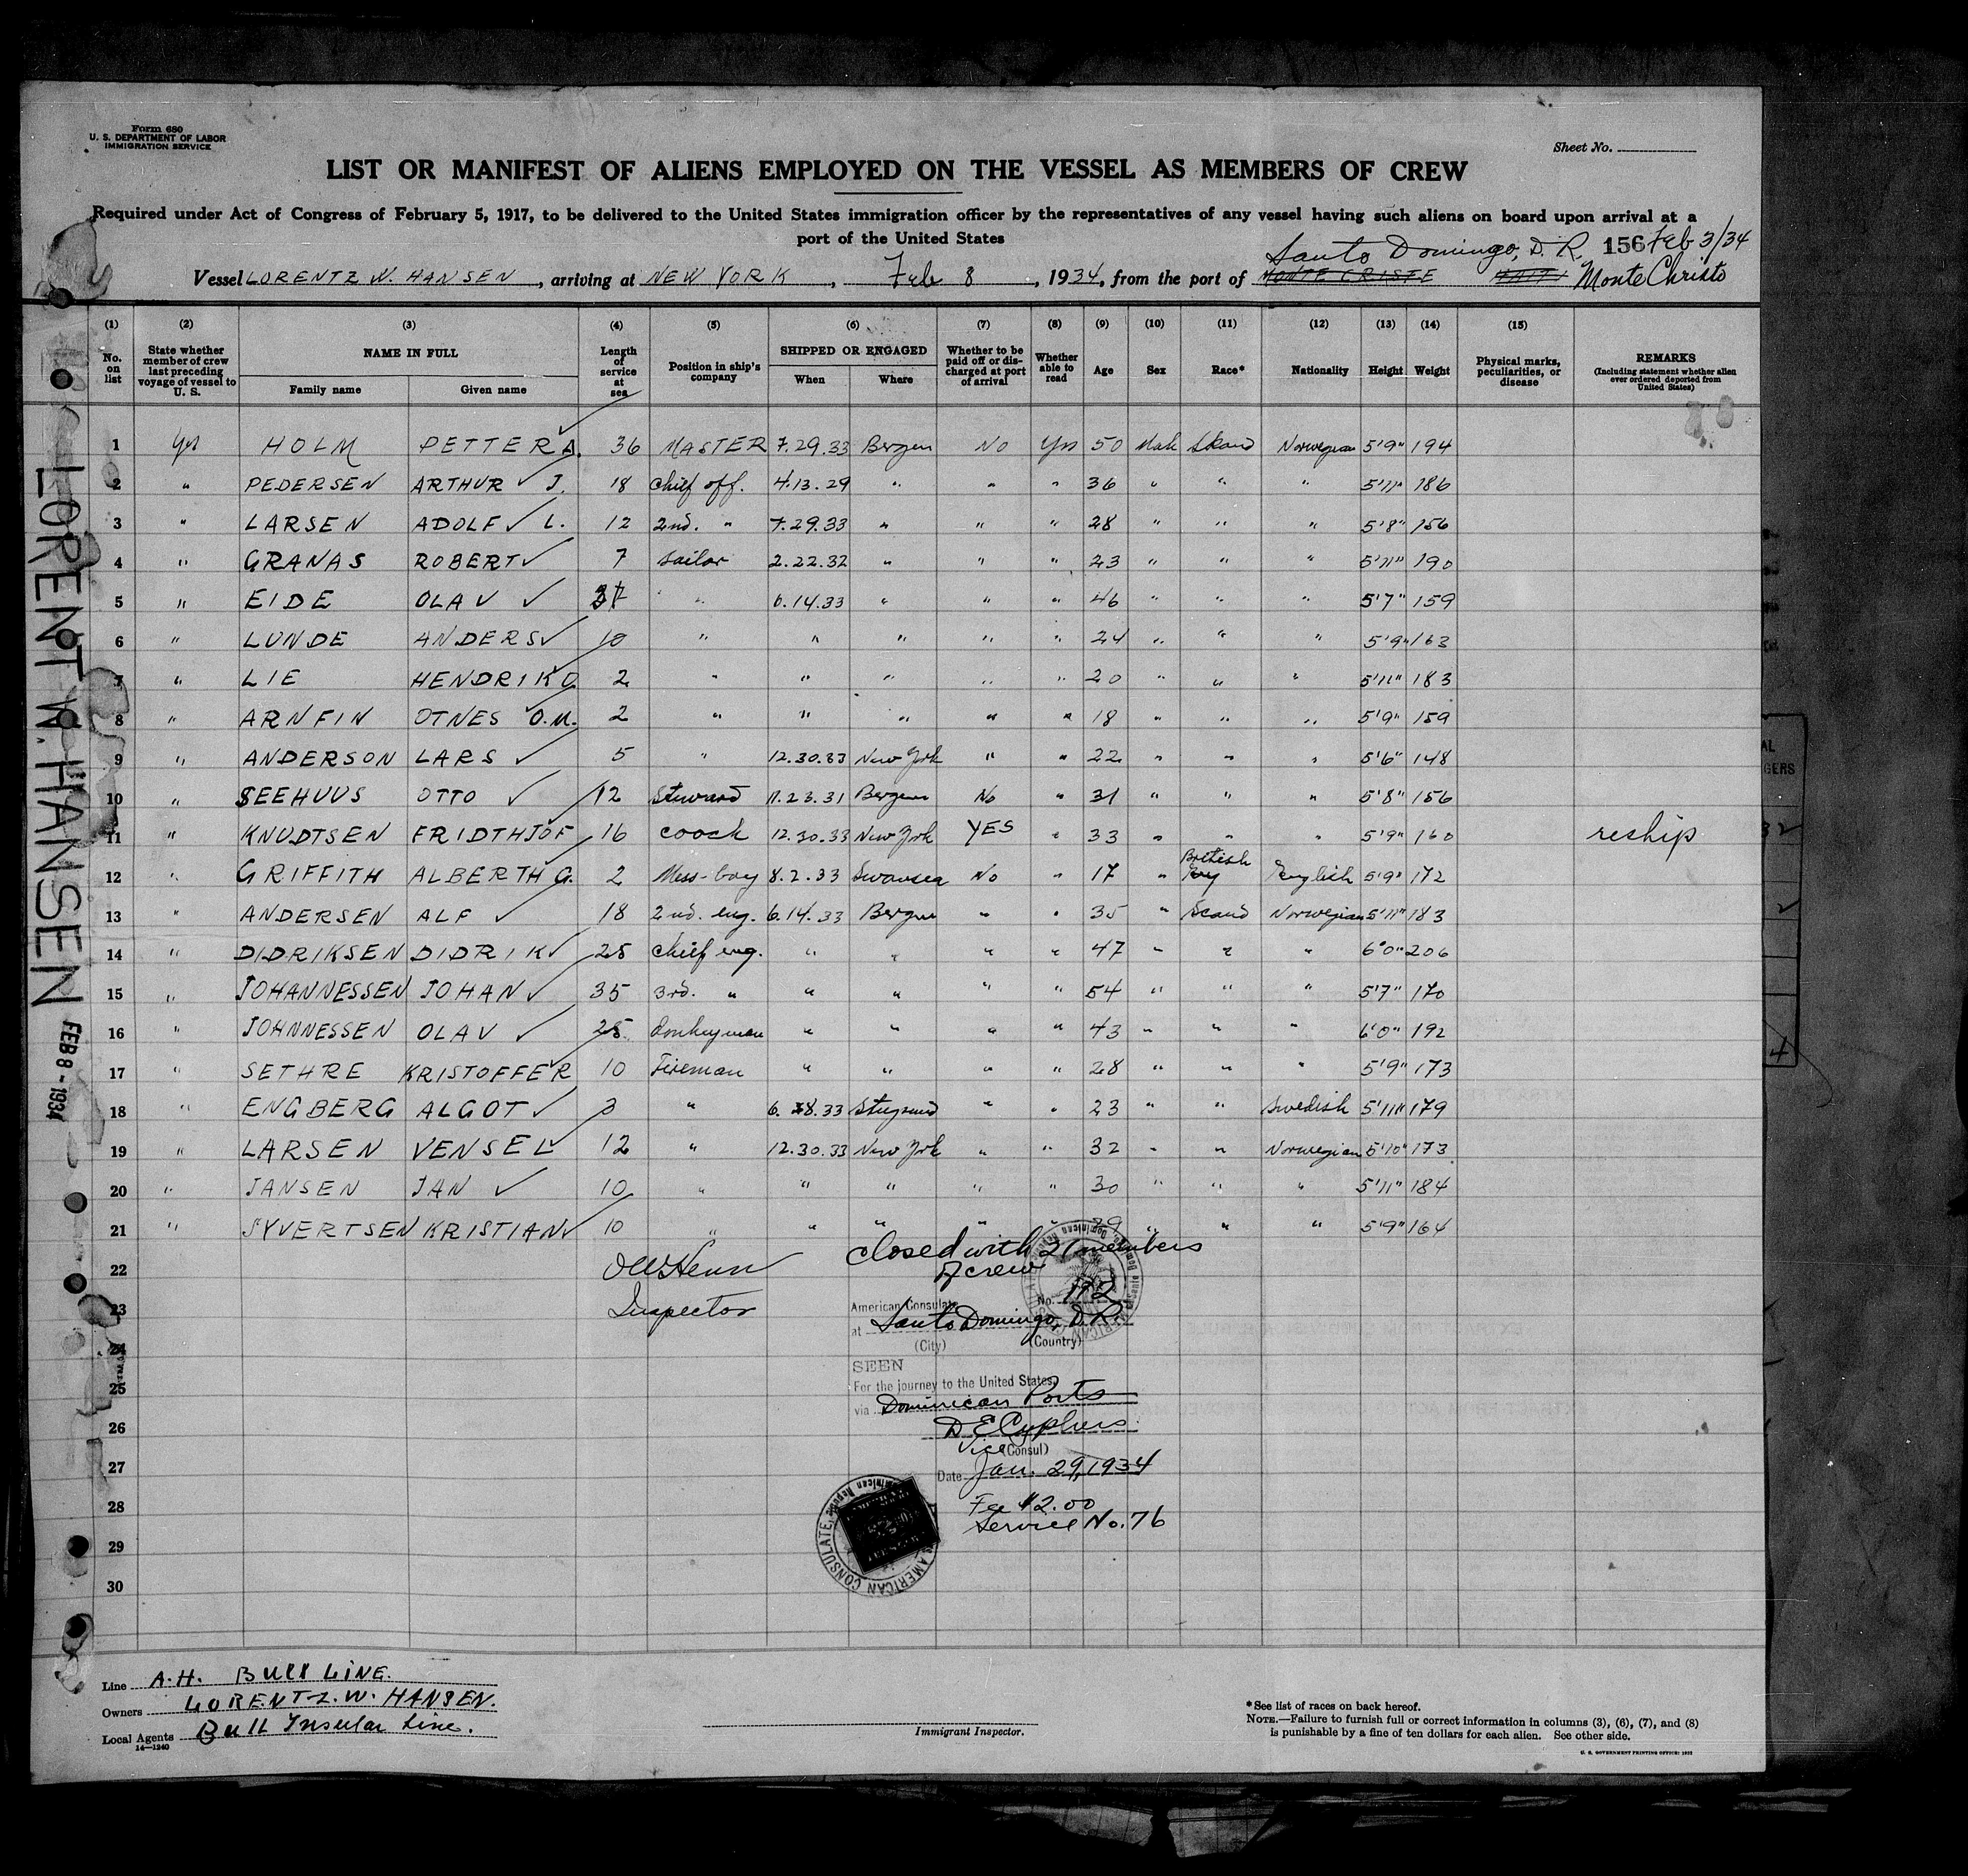 Form 680
U. S. DEPARTMENT OF LABOR
IMMIGRATION SERVICE
Sheet No.
LIST OR MANIFEST OF ALIENS EMPLOYED ON THE VESSEL AS MEMBERS OF CREW
Required under Act of Congress of February 5, 1917, to be delivered to the United States immigration officer by the representatives of any vessel having such aliens on board upon arrival at a
port of the United States
Santo Domingo, D. R. 156 Feb 3/34
Vessel LORENTZ W. HANSEN, arriving at NEW YORK, Feb 8, 1934, from the port of MONTE CRISTE HAITI Monte Christo
(1) (2) (3) (4) (5) (6) (7) (8) (9) (10) (11) (12) (13) (14) (15)
No. on list State whether member of crew last preceding voyage of vessel to U. S. NAME IN FULL Family name Given name Length of service at sea Position in ship's company SHIPPED OR ENGAGED When Where Whether to be paid off or discharged at port of arrival Whether able to read Age Sex Race* Nationality Height Weight Physical marks, peculiarities, or disease REMARKS (Including statement whether alien ever ordered deported from United States)
1 Yes HOLM PETTER A. 36 MASTER 7.29.33 Bergen No Yes 50 Male Skand Norwegian 5'9" 194
2 " PEDERSEN ARTHUR ✓ J. 18 chief off. 4.13.29 " " " 36 " " " 5'11" 186
3 " LARSEN ADOLF ✓ L. 12 2nd. " 7.29.33 " " " 28 " " " 5'8" 156
4 " GRANAS ROBERT ✓ 7 sailor 2.22.32 " " " 23 " " " 5'11" 190
5 " EIDE OLAV ✓ " 6.14.33 " " " 46 " " " 5'7" 159
6 " LUNDE ANDERS ✓ 10 " " " " " 24 " " " 5'9" 163
7 " LIE HENDRIK O 2 " " " " " 20 " " " 5'11" 183
8 " ARNFIN OTNES O.M. 2 " " " " " 18 " " " 5'9" 159
9 " ANDERSON LARS ✓ 5 " 12.30.33 New York " " 22 " " " 5'6" 148
10 " SEEHUUS OTTO ✓ 12 Steward 11.23.31 Bergen No " 31 " " " 5'8" 156
11 " KNUDTSEN FRIDTHJOF 16 coock 12.30.33 New York YES " 33 " " " 5'9" 160 reship
12 " GRIFFITH ALBERTH G. 2 Mess-boy 8.2.33 Swansea No " 17 " British English 5'9" 172
13 " ANDERSEN ALF ✓ 18 2nd. eng. 6.14.33 Bergen " " 35 " Scand Norwegian 5'11" 183
14 " DIDRIKSEN DIDRIK ✓ 25 chief eng. " " " " 47 " " " 6'0" 206
15 " JOHANNESSEN JOHAN ✓ 35 3rd. " " " " " 54 " " " 5'7" 170
16 " JOHNNESSEN OLAV ✓ 25 Donkeyman " " " " 43 " " " 6'0" 192
17 " SETHRE KRISTOFFER 10 Fireman " " " " 28 " " " 5'9" 173
18 " ENGBERG ALGOT ✓ 3 " 6. 8.33 Stugsund " " 23 " " Swedish 5'11" 179
19 " LARSEN VENSEL ✓ 12 " 12.30.33 New York " " 32 " " Norwegian 5'10" 173
20 " JANSEN JAN ✓ 10 " " " " " 30 " " " 5'11" 184
21 " SYVERTSEN KRISTIAN ✓ 10 " " " " " 29 " " " 5'9" 164
22
23
24
25
26
27
28
29
30
Inspector
closed with 21 members
of crew
American Consulate No. 172
at Santo Domingo, D.R.
(City) (Country)
SEEN
For the journey to the United States,
via Dominican Ports
D E Cyphers
Vice (Consul)
Date Jan. 29, 1934
Fee $2.00
Service No. 76
AMERICAN CONSULATE
LORENTZ W. HANSEN
FEB 8 - 1934
Line A.H. BULL LINE.
Owners LORENTZ. W. HANSEN.
Local Agents Bull Insular Line.
14—1240
Immigrant Inspector.
*See list of races on back hereof.
NOTE.—Failure to furnish full or correct information in columns (3), (6), (7), and (8)
is punishable by a fine of ten dollars for each alien. See other side.